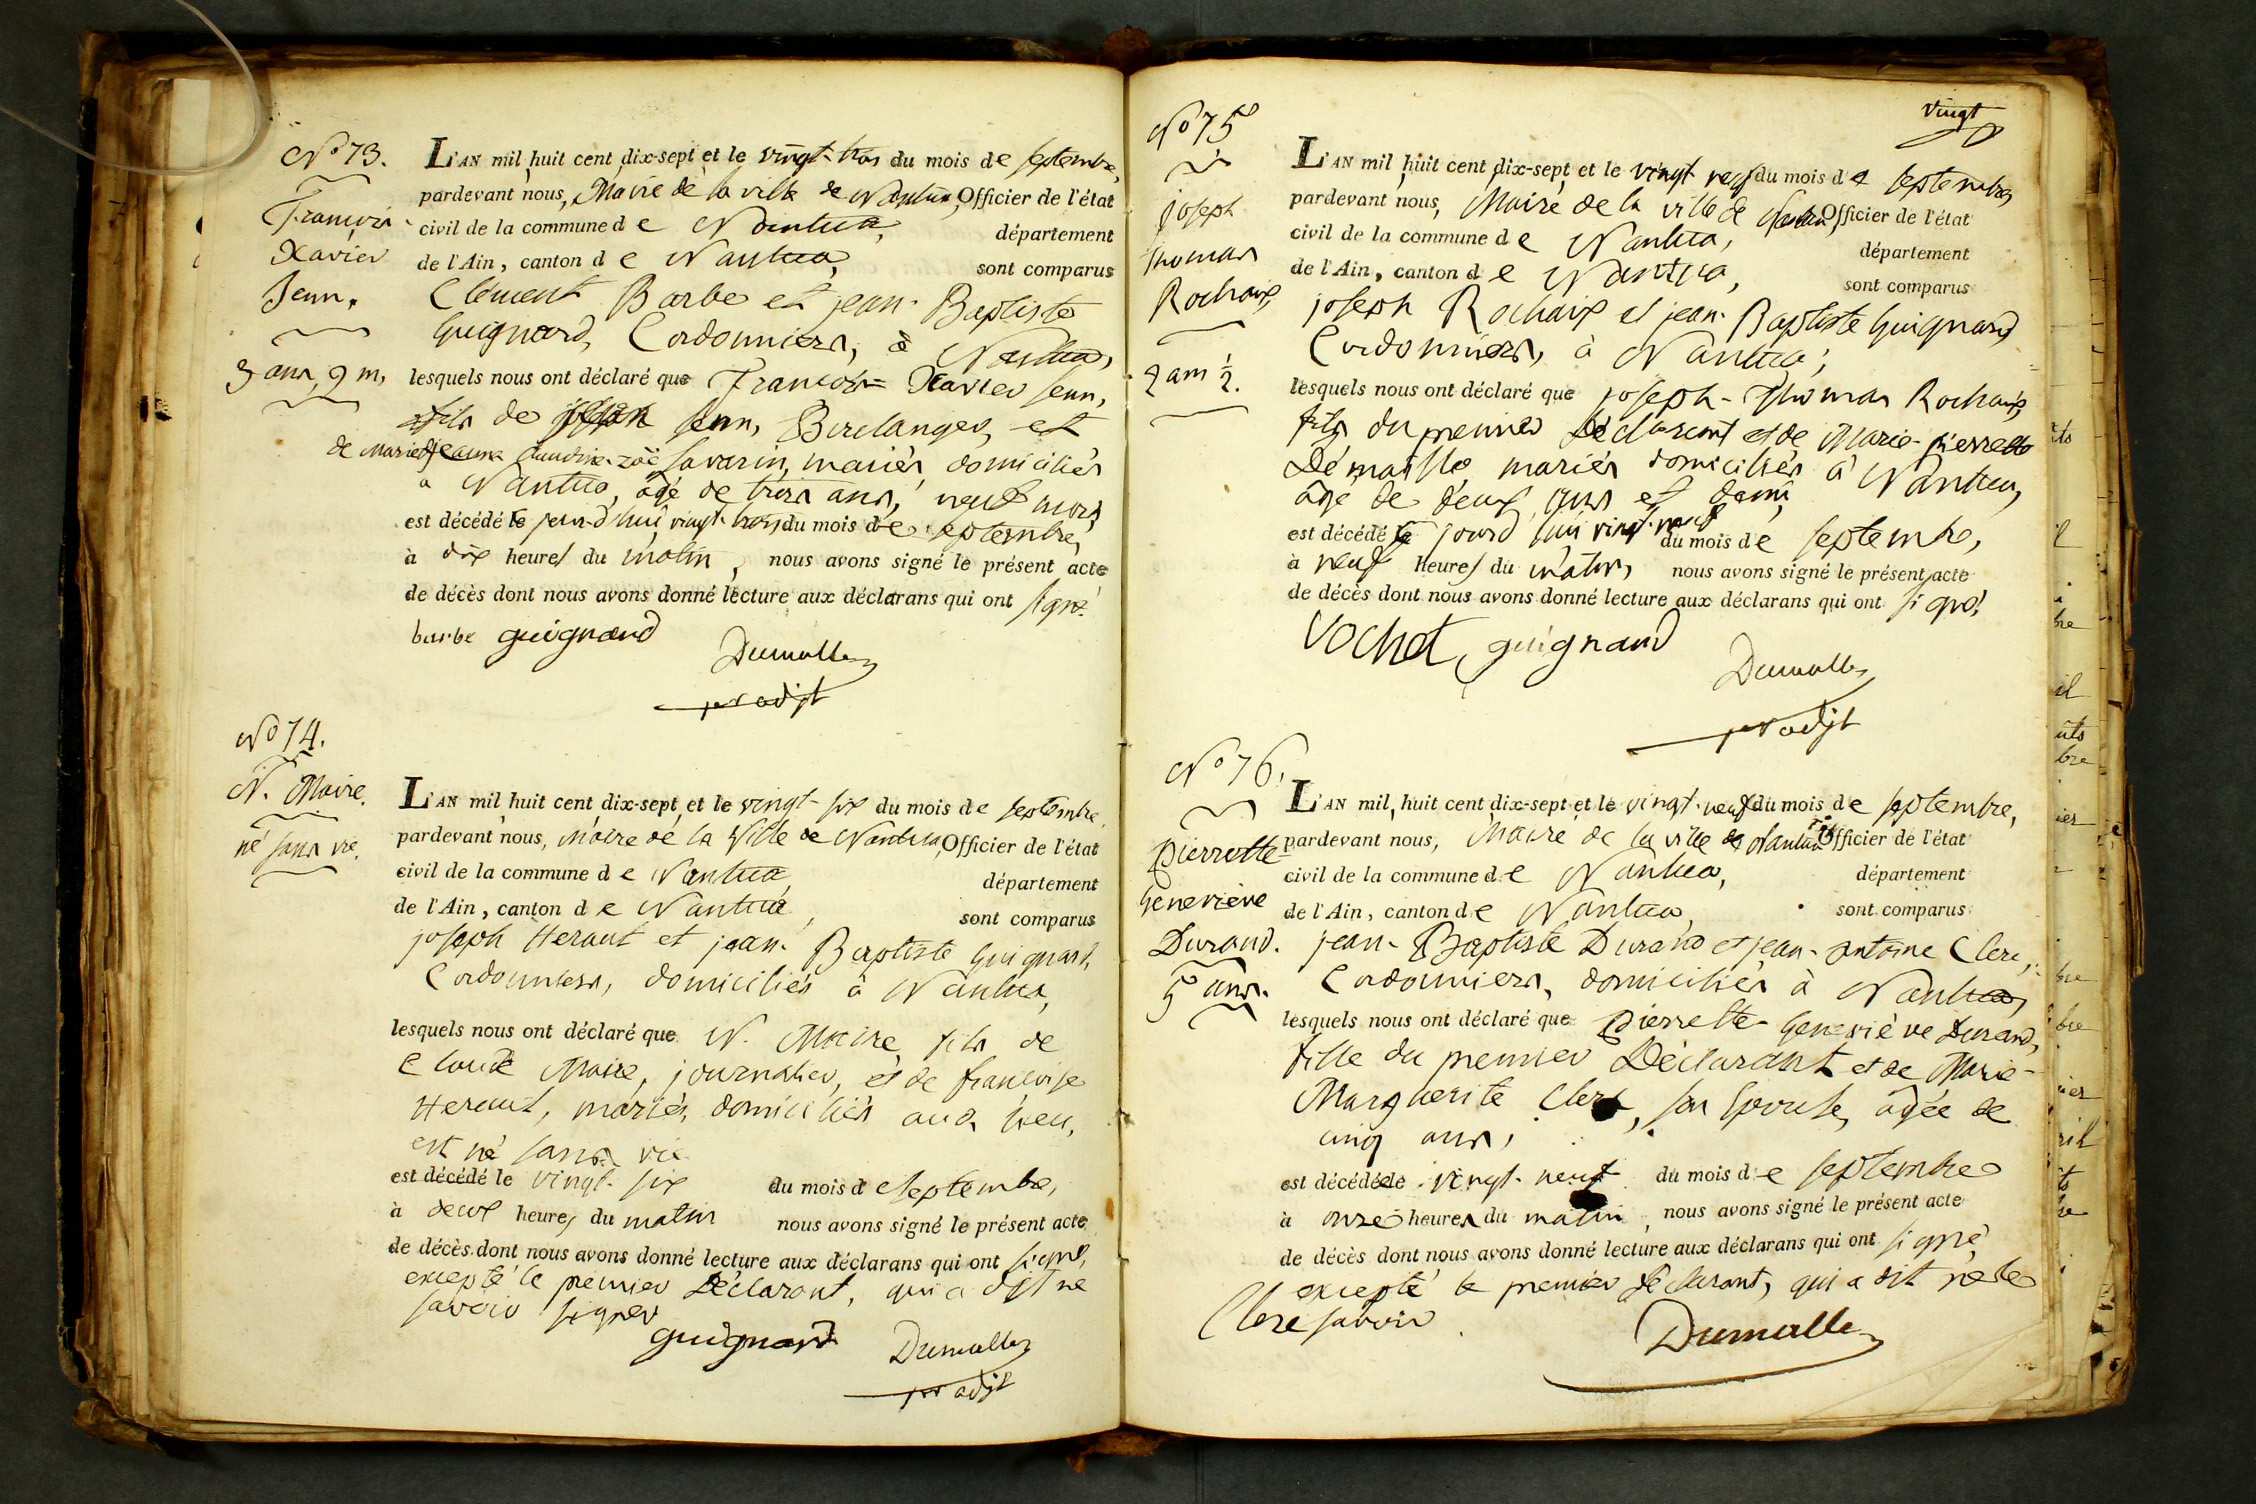 No 73.
François
Xavier
Jenn.
3 ans, 9 m,
L'AN mil huit cent dix-sept et le vingt-trois du mois de septembre,
pardevant nous, Maire de la ville de Nantua, Officier de l'état
civil de la commune de Nantua, département
de l'Ain, canton de Nantua, sont comparus
Clément Barbe et jean-Baptiste
Guignard, Cordonniers, à Nantua,
lesquels nous ont déclaré que François-Xavier Jenn,
fils de joseph Jenn, et
de Marie jeanne claudine-zoë Savarin, mariés domiciliés
à Nantua, âgé de trois ans, neuf mois
est décédé le jourd'hui vingt-trois du mois de septembre,
à dix heures du matin, nous avons signé le présent acte
de décès dont nous avons donné lecture aux déclarans qui ont signé.
barbe guignard Dumolle
pr adjt
No 74.
N. Maire.
né sans vie.
L'AN mil huit cent dix-sept et le vingt-six du mois de septembre,
pardevant nous, Maire de la Ville de Nantua, Officier de l'état
civil de la commune de Nantua, département
de l'Ain, canton de Nantua, sont comparus
joseph Heraut et jean-Baptiste Guignard,
Cordonniers, domiciliés à Nantua,
lesquels nous ont déclaré que N. Maire, fils de
Claude Maire, journalier, et de françoise
Heraut, mariés, domiciliés aud. lieu,
est né sans vie
est décédé le vingt-six du mois de septembre,
à deux heures du matin nous avons signé le présent acte
de décès dont nous avons donné lecture aux déclarans qui ont signé,
excepté le premier Déclarant, qui a dit ne
savoir signer
guignard Dumolle
pr adjt
vingt
No 75
joseph
Thomas
Rochaix
2 ans ½.
L'AN mil huit cent dix-sept et le vingt neuf du mois de septembre,
pardevant nous, Maire de la ville de Nantua, Officier de l'état
civil de la commune de Nantua, département
de l'Ain, canton de Nantua, sont comparus
joseph Rochaix et jean-Baptiste Guignard
Cordonniers, à Nantua,
lesquels nous ont déclaré que joseph-Thomas Rochaix,
fils du premier Déclarant et de Marie-pierrette
mariés domiciliés à Nantua,
âgé de deux ans et demi,
est décédé le jourd'hui vingt-neuf du mois de septembre,
à neuf heures du matin, nous avons signé le présent acte
de décès dont nous avons donné lecture aux déclarans qui ont signé.
guignard
Dumolle
pr adjt
No 76.
Pierrette-
Geneviève
Durand.
5 ans.
L'AN mil huit cent dix-sept et le vingt-neuf du mois de septembre,
pardevant nous, Maire de la ville de Nantua Officier de l'état
civil de la commune de Nantua, département
de l'Ain, canton de Nantua, sont comparus
jean-Baptiste Durand et jean-antoine Clerc,
Cordonniers, domiciliés à Nantua,
lesquels nous ont déclaré que Pierrette-Geneviève Durand,
fille du premier Déclarant et de Marie-
Marguerite Clerc, son Epouse, âgée de
cinq ans,
est décédée le vingt-neuf du mois de septembre
à onze heures du matin, nous avons signé le présent acte
de décès dont nous avons donné lecture aux déclarans qui ont signé
excepté le premier déclarant, qui a dit ne le
Clerc savoir
Dumolle